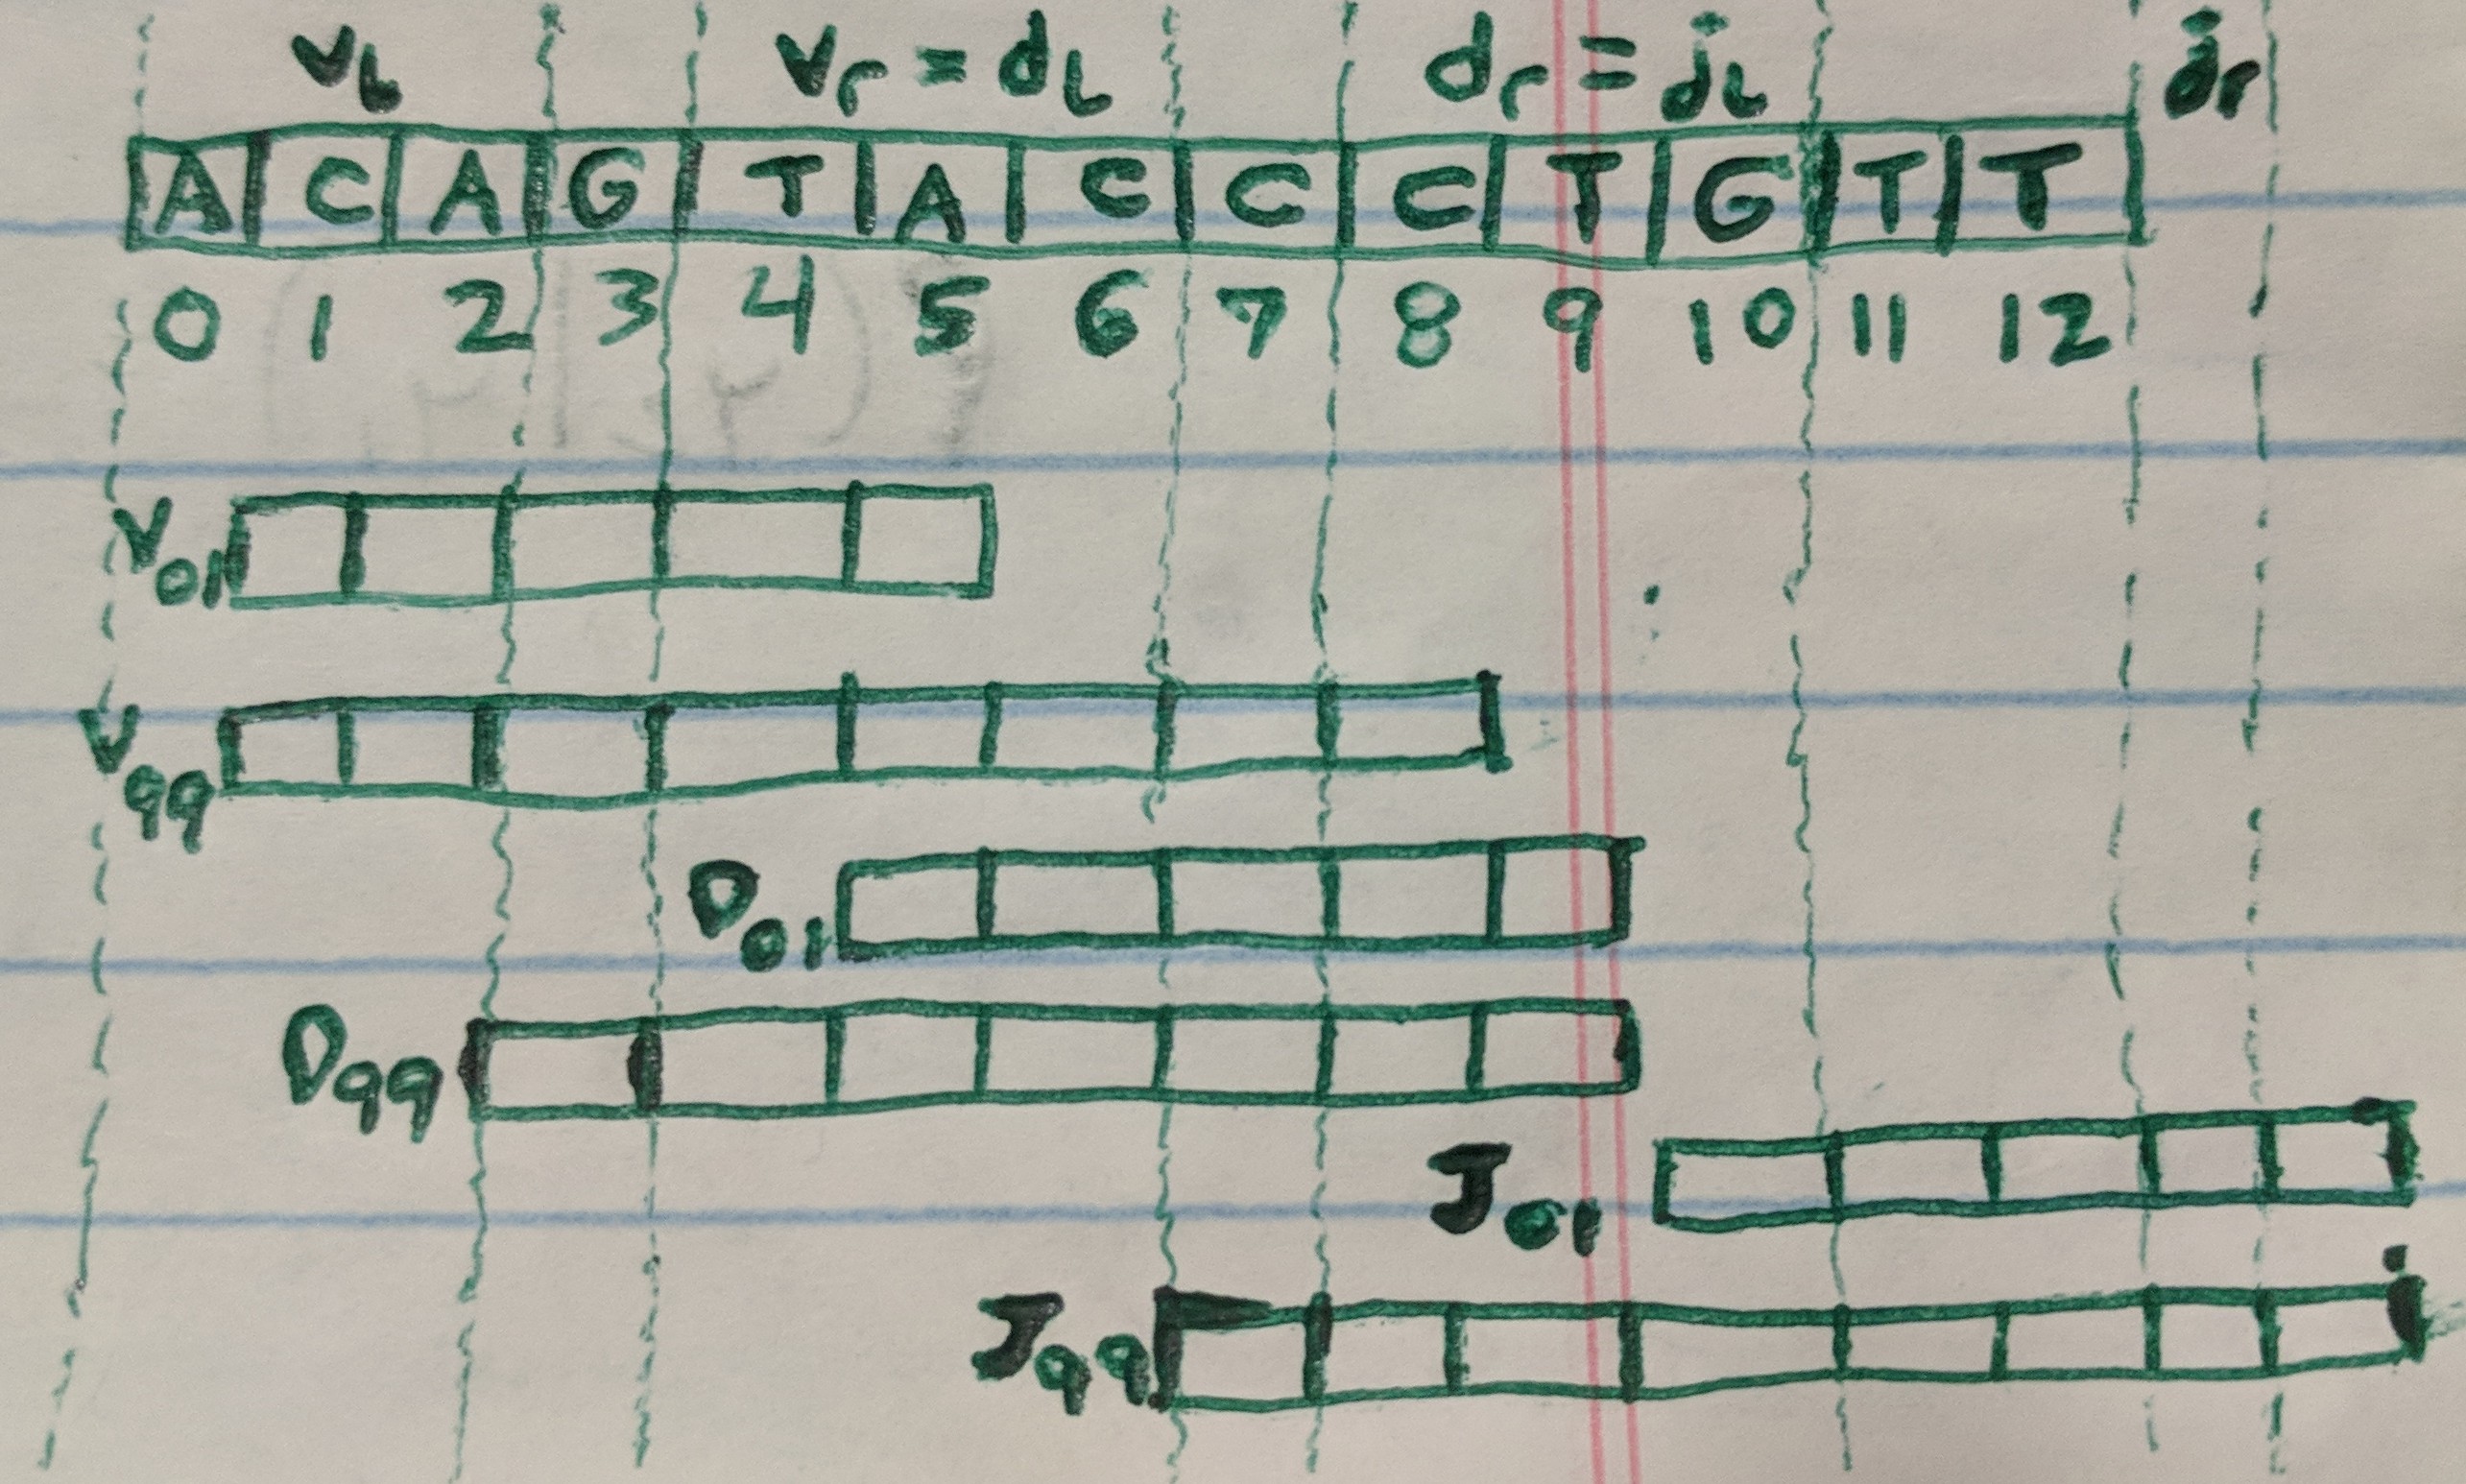 v_l v_r = d_l d_r = j_l j_r
A C A G T A C C C T G T T
0 1 2 3 4 5 6 7 8 9 10 11 12
V_01
V_99
D_01
D_99
J_01
J_99